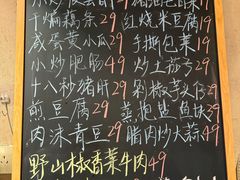 干煸藕条29 红烧米豆腐19
咸蛋黄小瓜29 手撕包菜19
小炒肥肠49 炒土茄子29
十八秒猪肝49 剁椒芋仔29
煎豆腐29 蒸泡盐鱼块
肉沫青豆29 腊肉炒大蒜49
野山椒香菜牛肉49